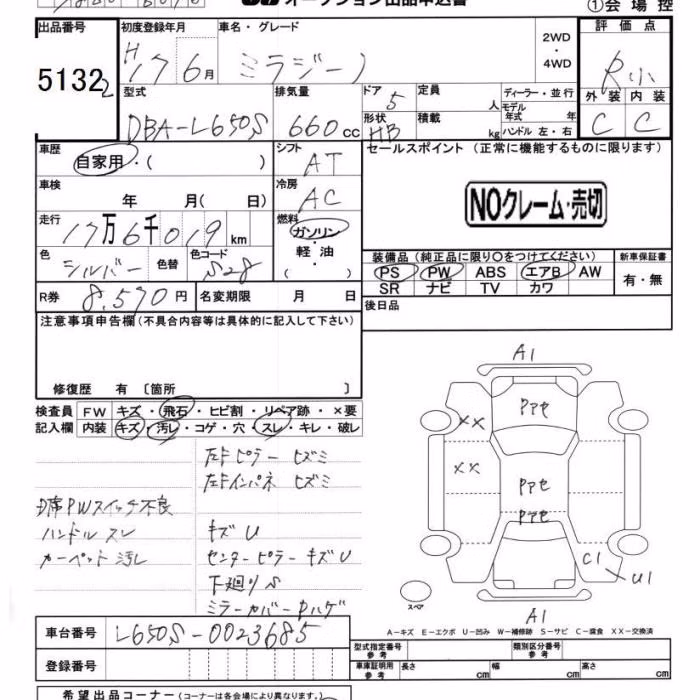 オークション出品申込書
①会場控
出品番号
5132 2
初度登録年月
H17 6月
車名・グレード
ミラジーノ
2WD・4WD
評価点
R小
型式
DBA-L650S
排気量
660cc
ドア
5
定員
人
ディーラー・並行
モデル年式
年
形状
HB
積載
kg
ハンドル 左・右
外装 内装
C C
車歴
自家用・( )
シフト
AT
セールスポイント (正常に機能するものに限ります)
NOクレーム・売切
車検
年 月( 日)
冷房
AC
走行
17万6千019km
燃料
ガソリン・軽油・( )
色
シルバー
色替
色コード
S28
装備品 (純正品に限り〇をつけてください)
新車保証書
PS PW ABS エアB AW
SR ナビ TV カワ
有・無
R券
8.590円
名変期限 月 日
後日品
注意事項申告欄 (不具合内容等は具体的に記入して下さい)
修復歴 有 〔箇所 〕
検査員記入欄
FW キズ・飛石・ヒビ割・リペア跡・×要
内装 キズ・汚レ・コゲ・穴・スレ・キレ・破レ
左Fピラー ヒズミ
左Fインパネ ヒズミ
D席PWスイッチ不良
ハンドル スレ
キズU
カーペット 汚レ
センターピラー キズU
下廻りS
ミラーカバー 
A1
Pアセ
××
××
Pアセ
Pアセ
C1
U1
A1
スペア
A-キズ E-エクボ U-凹み W-補修跡 S-サビ C-腐食 XX-交換済
車台番号
L650S-0023685
登録番号
型式指定番号 参考
類別区分番号 参考
車庫証明用 参考
長さ cm
幅 cm
高さ cm
希望出品コーナー (コーナーは各会場により異なります。)